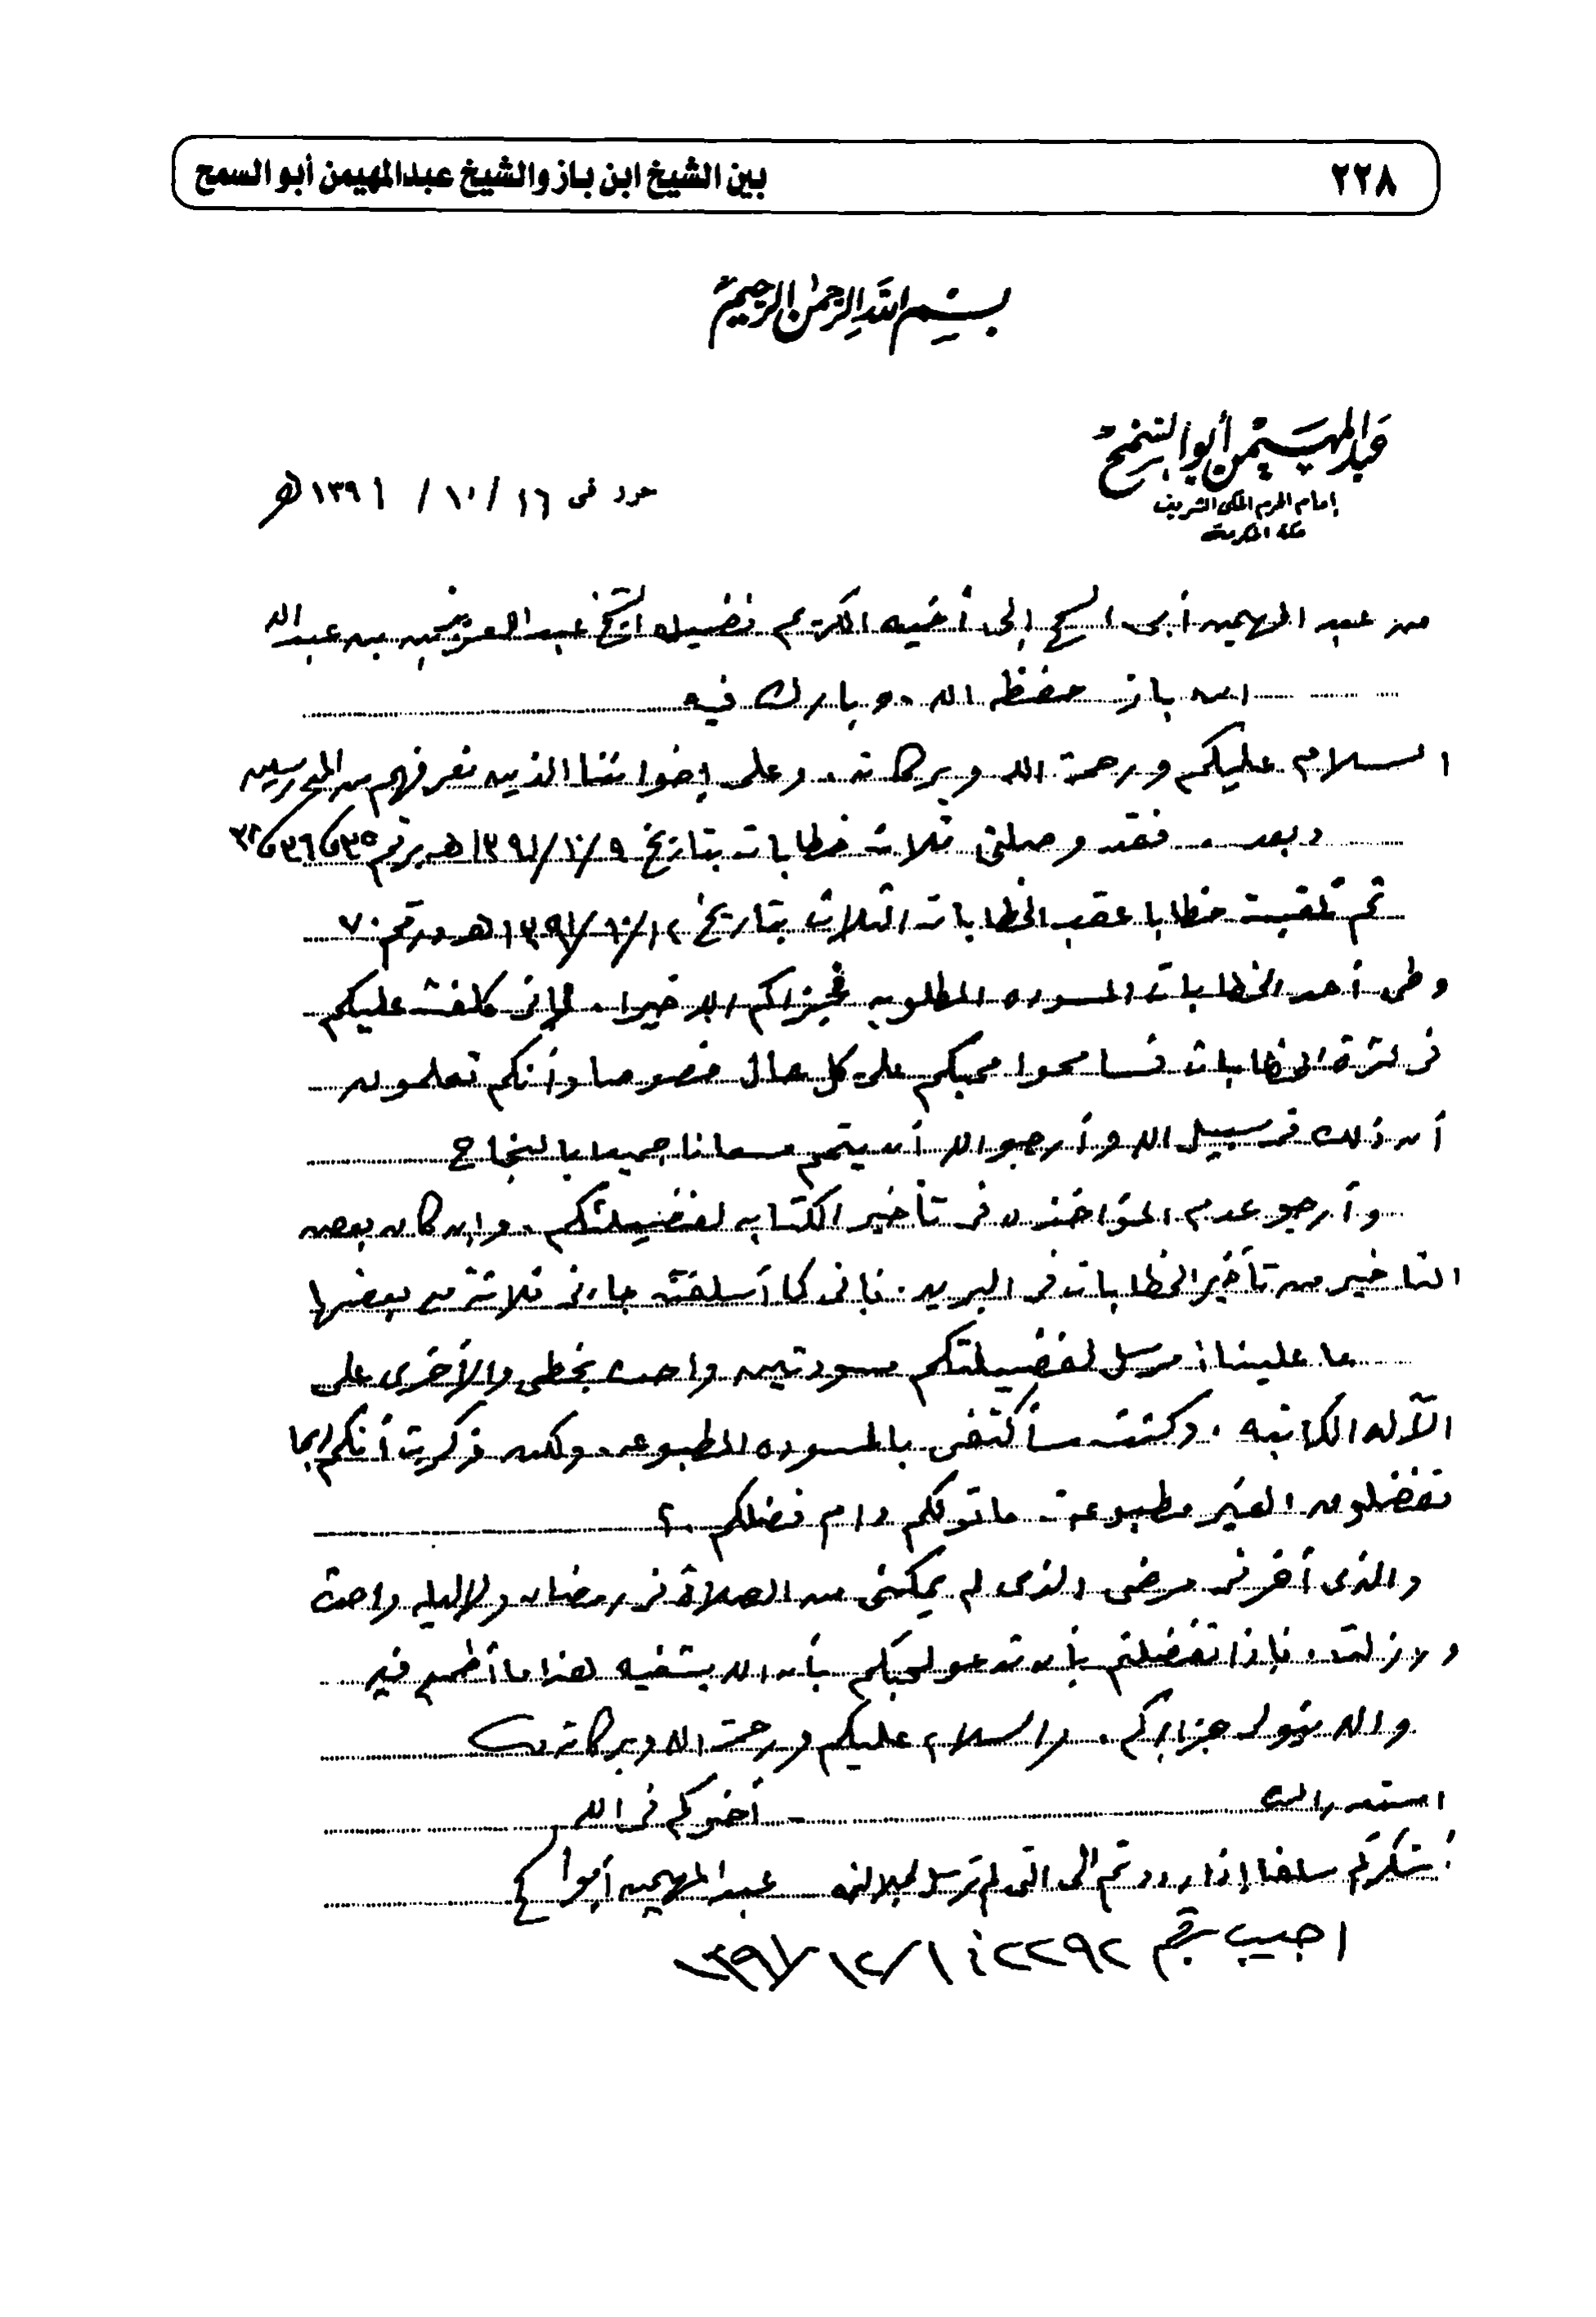 ٢٢٨
بين الشيخ ابن باز والشيخ عبدالمهيمن أبو السمح
بسم الله الرحمن الرحيم
عبد المهيمن أبو السمح
إمام الحرم المكى الشريف
مكة المكرمة
حرر فى ١٦ / ١٠ / ١٣٩١ هـ
من عبد المهيمن أبى السمح إلى أخيه الكريم فضيلة الشيخ عبد العزيز بن عبد الله
ابن باز حفظه الله . وبارك فيه
السلام عليكم ورحمة الله وبركاته . وعلى إخواننا الذين نعرفهم من المدرسين
وبعد . فقد وصلتنى ثلاث خطابات بتاريخ ٩ / ١٠ / ١٣٩١ هـ برقم ٣٥ و ٣٦ و
ثم تلقيت خطابا عقب الخطابات الثلاث بتاريخ ١٢ / ١٠ / ١٣٩١ هـ ورقم ٧٠
وطى أحد الخطابات المسوده المطلوبه فجزاكم الله خيرا . فإنى كلفت عليكم
فى كثرة الخطابات فسامحوا محبكم على كل حال خصوصا وأنكم تعلمون
أن ذلك فى سبيل الله وأرجو الله أن يتمم مسعانا جميعا بالنجاح
وأرجو عدم المؤاخذه فى تأخير الكتابه لفضيلتكم . وإن كان بعض
التاخير من تأخير الخطابات فى البريد . فإنى كما أسلفت جاءنى ثلاثة مع بعضها
ما علينا : مرسل لفضيلتكم مسودتين واحدة بخطى والأخرى على
الآله الكاتبه . وكنت سأكتفى بالمسوده المطبوعه . ولكن ذكرت أنكم ربما
تفضلون الغير مطبوعة . ما قولكم دام فضلكم . ؟
والذى أخرنى مرضى الذى لم يمكننى من الصلاة فى رمضان ولا ليله واحدة
ولا زلت . فإذا تفضلتم بأن تدعو لمحبكم بأن الله يشفيه لهذا ما أطمع فيه
والله يتولى جزاءكم . والسلام عليكم ورحمة الله وبركاته
استدراك
أخوكم فى الله
أشكركم سلفا إذا رددتم الى التى لم ترسل لجلالته
عبد المهيمن أبو السمح
اجيب برقم ٢٢٩٢ في ١ / ١٢ / ١٣٩١